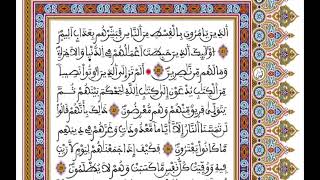 ٱلَّذِينَ يَأْمُرُونَ بِٱلْقِسْطِ مِنَ ٱلنَّاسِ فَبَشِّرْهُم بِعَذَابٍ أَلِيمٍ
أُو۟لَٰٓئِكَ ٱلَّذِينَ حَبِطَتْ أَعْمَٰلُهُمْ فِى ٱلدُّنْيَا وَٱلْءَاخِرَةِ
وَمَا لَهُم مِّن نَّٰصِرِينَ أَلَمْ تَرَ إِلَى ٱلَّذِينَ أُوتُوا۟ نَصِيبًا
مِّنَ ٱلْكِتَٰبِ يُدْعَوْنَ إِلَىٰ كِتَٰبِ ٱللَّهِ لِيَحْكُمَ بَيْنَهُمْ ثُمَّ
يَتَوَلَّىٰ فَرِيقٌ مِّنْهُمْ وَهُم مُّعْرِضُونَ ذَٰلِكَ بِأَنَّهُمْ قَالُوا۟
لَن تَمَسَّنَا ٱلنَّارُ إِلَّآ أَيَّامًا مَّعْدُودَٰتٍ وَغَرَّهُمْ فِى دِينِهِم
مَّا كَانُوا۟ يَفْتَرُونَ فَكَيْفَ إِذَا جَمَعْنَٰهُمْ لِيَوْمٍ لَّا رَيْبَ
فِيهِ وَوُفِّيَتْ كُلُّ نَفْسٍ مَّا كَسَبَتْ وَهُمْ لَا يُظْلَمُونَ